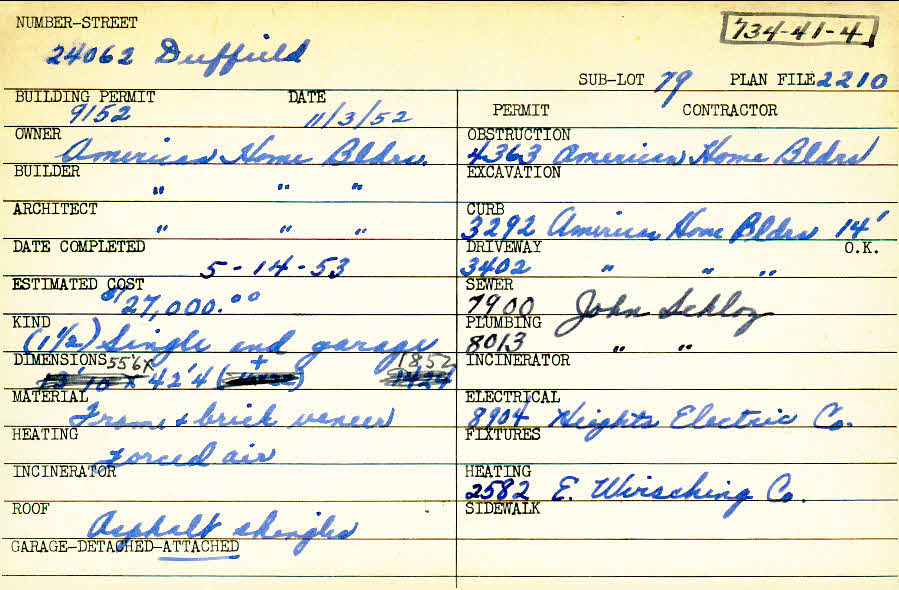 NUMBER-STREET
734-41-4
24062 Duffield
SUB-LOT 79 PLAN FILE 2210
BUILDING PERMIT DATE
9152 11/3/52
OWNER
American Home Bldrs.
BUILDER
" " "
ARCHITECT
" " "
DATE COMPLETED
5-14-53
ESTIMATED COST
$27,000.00
KIND
(1 1/2) Single and garage
DIMENSIONS 55'6 x 1852
13'10 x 42'4 ( + ) 1424
MATERIAL
Frame + brick veneer
HEATING
Forced air
INCINERATOR
ROOF
Asphalt shingles
GARAGE-DETACHED-ATTACHED
PERMIT CONTRACTOR
OBSTRUCTION
4363 American Home Bldrs
EXCAVATION
CURB
3292 American Home Bldrs 14'
DRIVEWAY O.K.
3402 " " "
SEWER
7900 John
PLUMBING
8013 " "
INCINERATOR
ELECTRICAL
8904 Heights Electric Co.
FIXTURES
HEATING
2582 E. Wirsching Co.
SIDEWALK